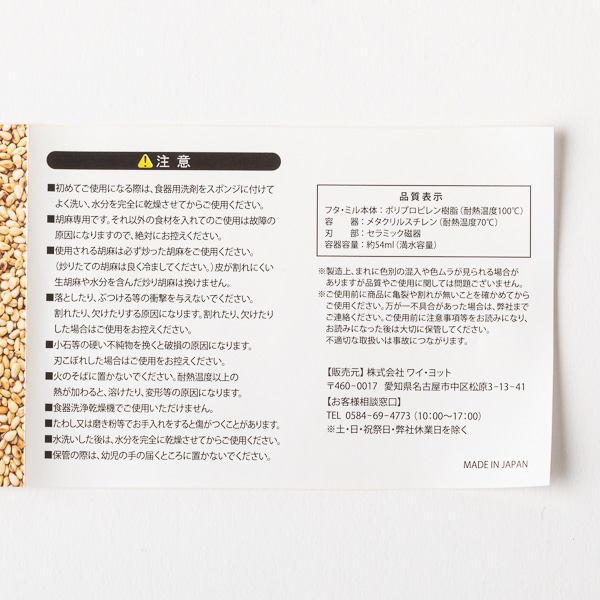 注意
■初めてご使用になる際は、食器用洗剤をスポンジに付けて
よく洗い、水分を完全に乾燥させてからご使用ください。
■胡麻専用です。それ以外の食材を入れてのご使用は故障の
原因になりますので、絶対にお控えください。
■使用される胡麻は必ず炒った胡麻をご使用ください。
(炒りたての胡麻は良く冷ましてください。)皮が割れにくい
生胡麻や水分を含んだ炒り胡麻は挽けません。
■落としたり、ぶつける等の衝撃を与えないでください。
割れたり、欠けたりする原因になります。割れたり、欠けたり
した場合はご使用をお控えください。
■小石等の硬い不純物を挽くと破損の原因になります。
刃こぼれした場合はご使用をお控えください。
■火のそばに置かないでください。耐熱温度以上の
熱が加わると、溶けたり、変形等の原因になります。
■食器洗浄乾燥機でご使用いただけません。
■たわし又は磨き粉等でお手入れをすると傷がつくことがあります。
■水洗いした後は、水分を完全に乾燥させてからご使用ください。
■保管の際は、幼児の手の届くところに置かないでください。
品質表示
フタ・ミル本体：ポリプロピレン樹脂(耐熱温度100℃)
容器：メタクリルスチレン(耐熱温度70℃)
刃部：セラミック磁器
容器容量：約54ml(満水容量)
※製造上、まれに色別の混入や色ムラが見られる場合が
ありますが品質やご使用に関しては問題ございません。
※ご使用前に商品に亀裂や割れが無いことを確かめてから
ご使用ください。万が一不具合があった場合は、弊社まで
ご連絡ください。ご使用前に注意事項等をお読みになり、
お読みになった後は大切に保管してください。
不適切な取扱いは事故につながります。
【販売元】株式会社 ワイ・ヨット
〒460-0017 愛知県名古屋市中区松原3-13-41
【お客様相談窓口】
TEL 0584-69-4773 (10:00~17:00)
※土・日・祝祭日・弊社休業日を除く
MADE IN JAPAN